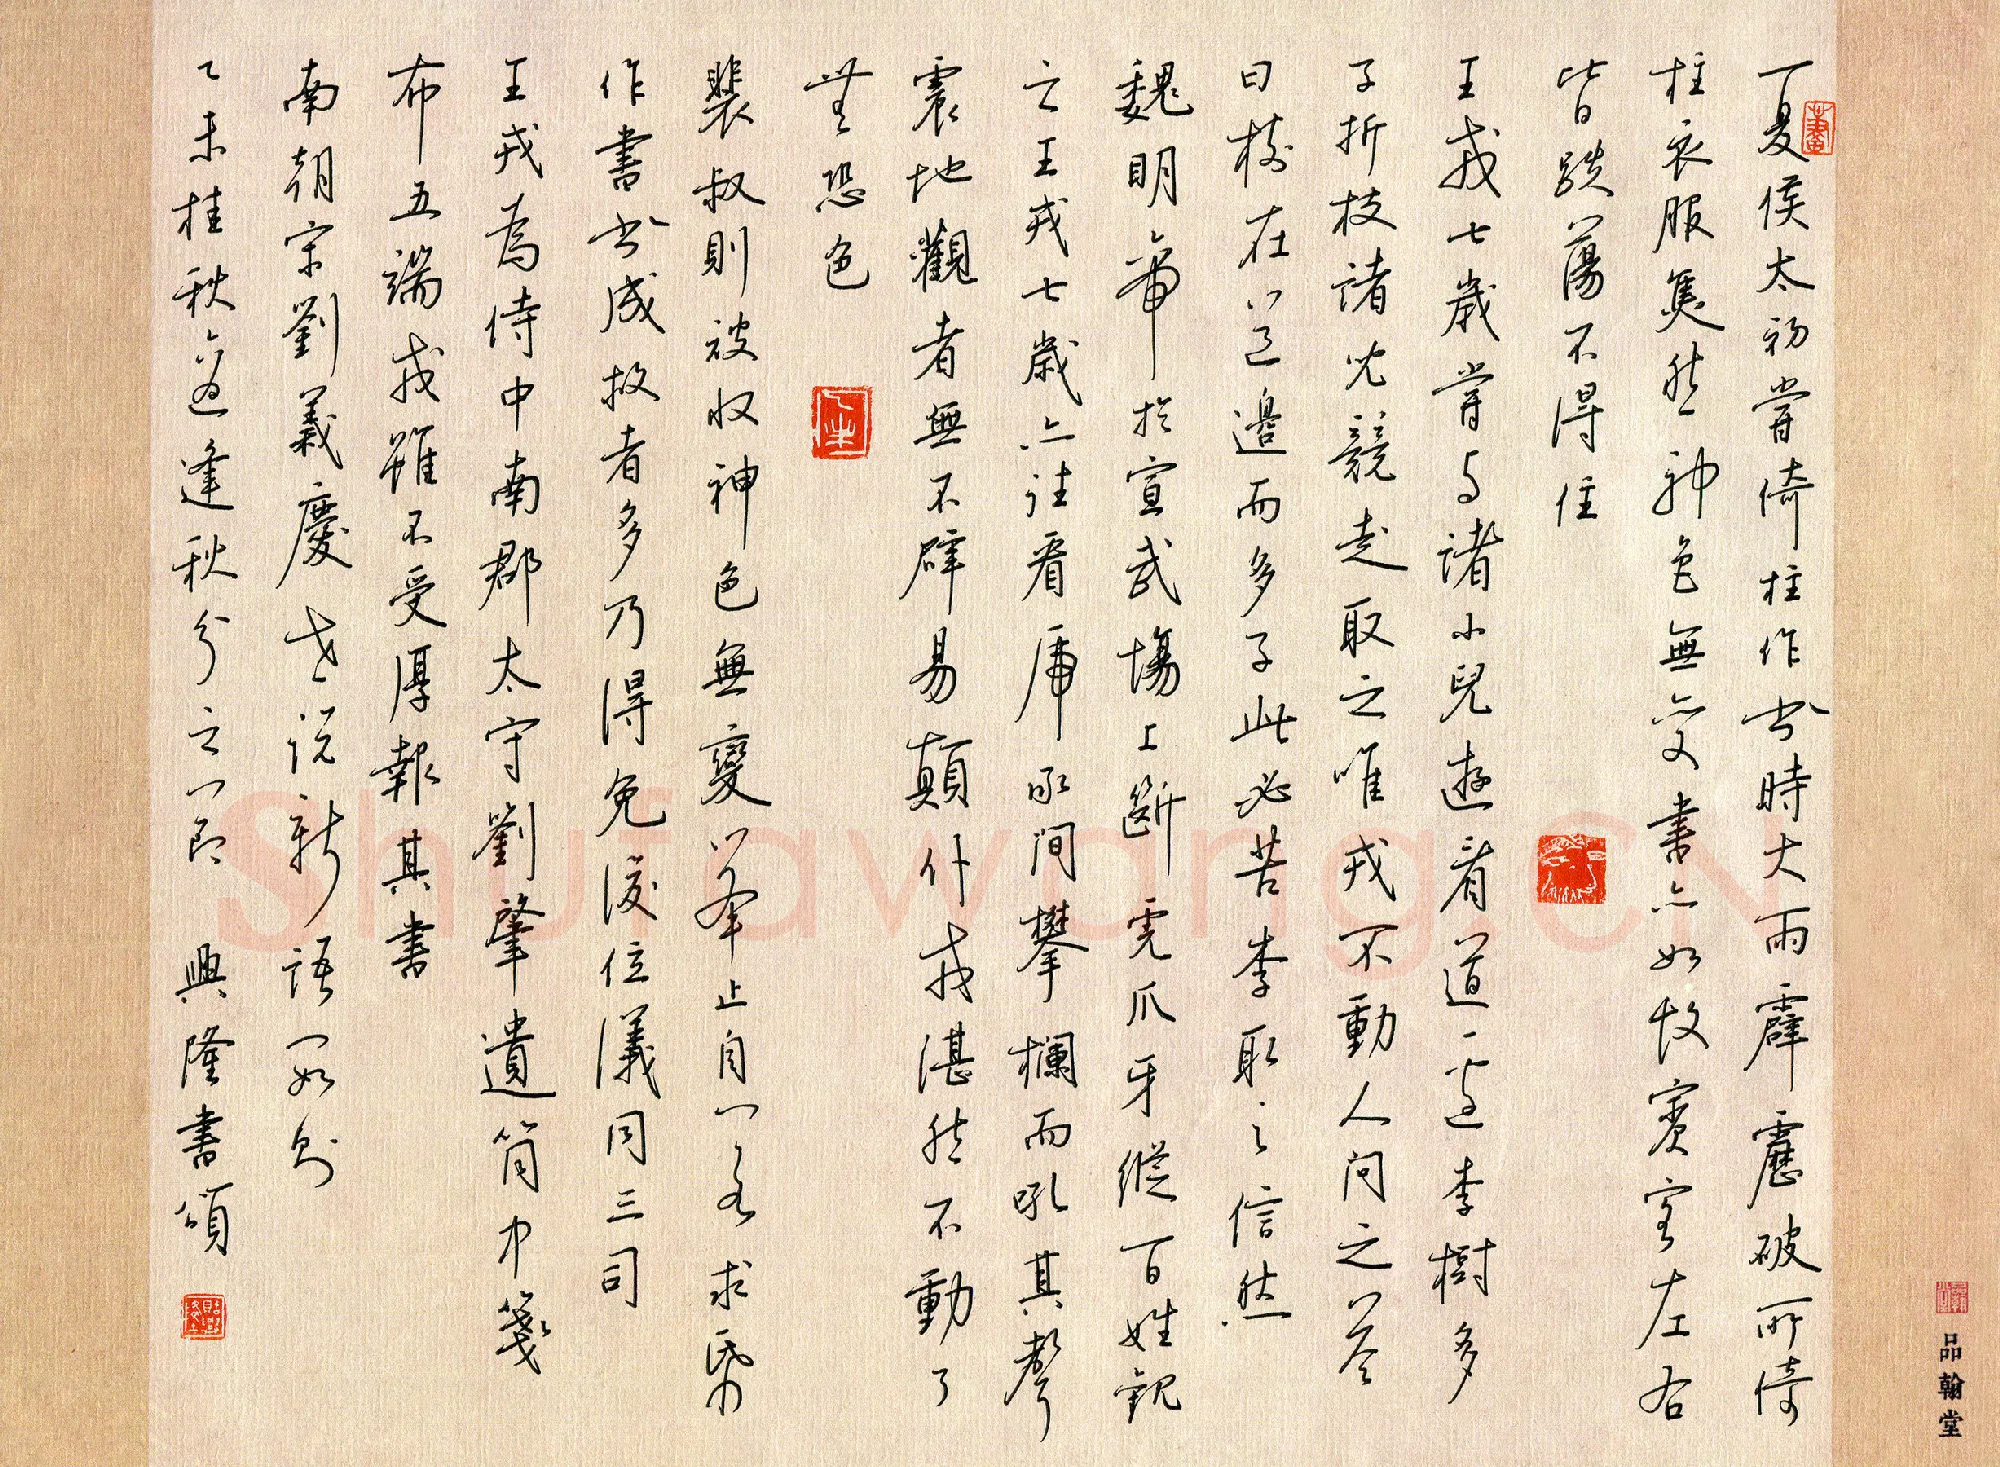 夏侯太初嘗倚柱作书時大雨霹靂破所倚
柱衣服焦然神色無变書亦如故賓客左右
皆跌蕩不得住
王戎七歲嘗与諸小兒遊看道边李樹多
子折枝諸児競走取之唯戎不動人問之答
曰樹在道邊而多子此必苦李取之信然
魏明帝於宣武場上斷虎爪牙縱百姓観
之王戎七歲亦往看虎承间攀欄而吼其聲
震地觀者無不辟易顛仆戎湛然不動了
無恐色
裴叔則被收神色無變举止自若求紙筆
作書书成救者多乃得免後位儀同三司
王戎為侍中南郡太守劉肇遺筒中箋
布五端戎雖不受厚報其書
南朝宋劉義慶世说新語一如则
乙未桂秋適逢秋分之即 興隆書頌
品翰堂
Shufawang.cn